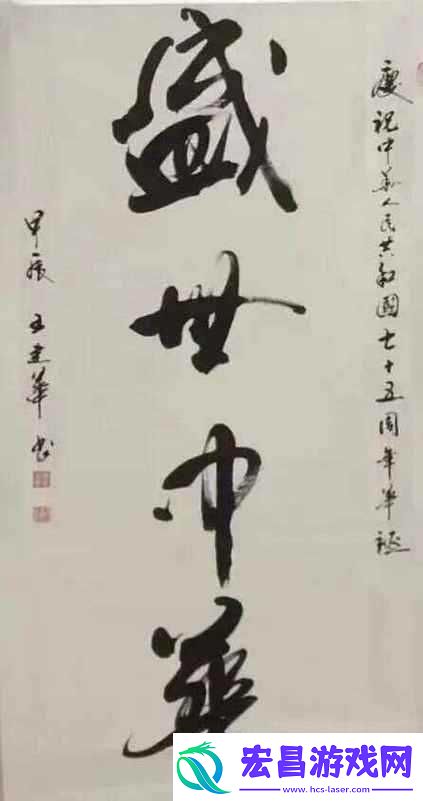 慶祝中華人民共和國七十五周年華誕
盛世中華
甲辰 王建華書
宏昌游戏网
www.hcs-laser.com